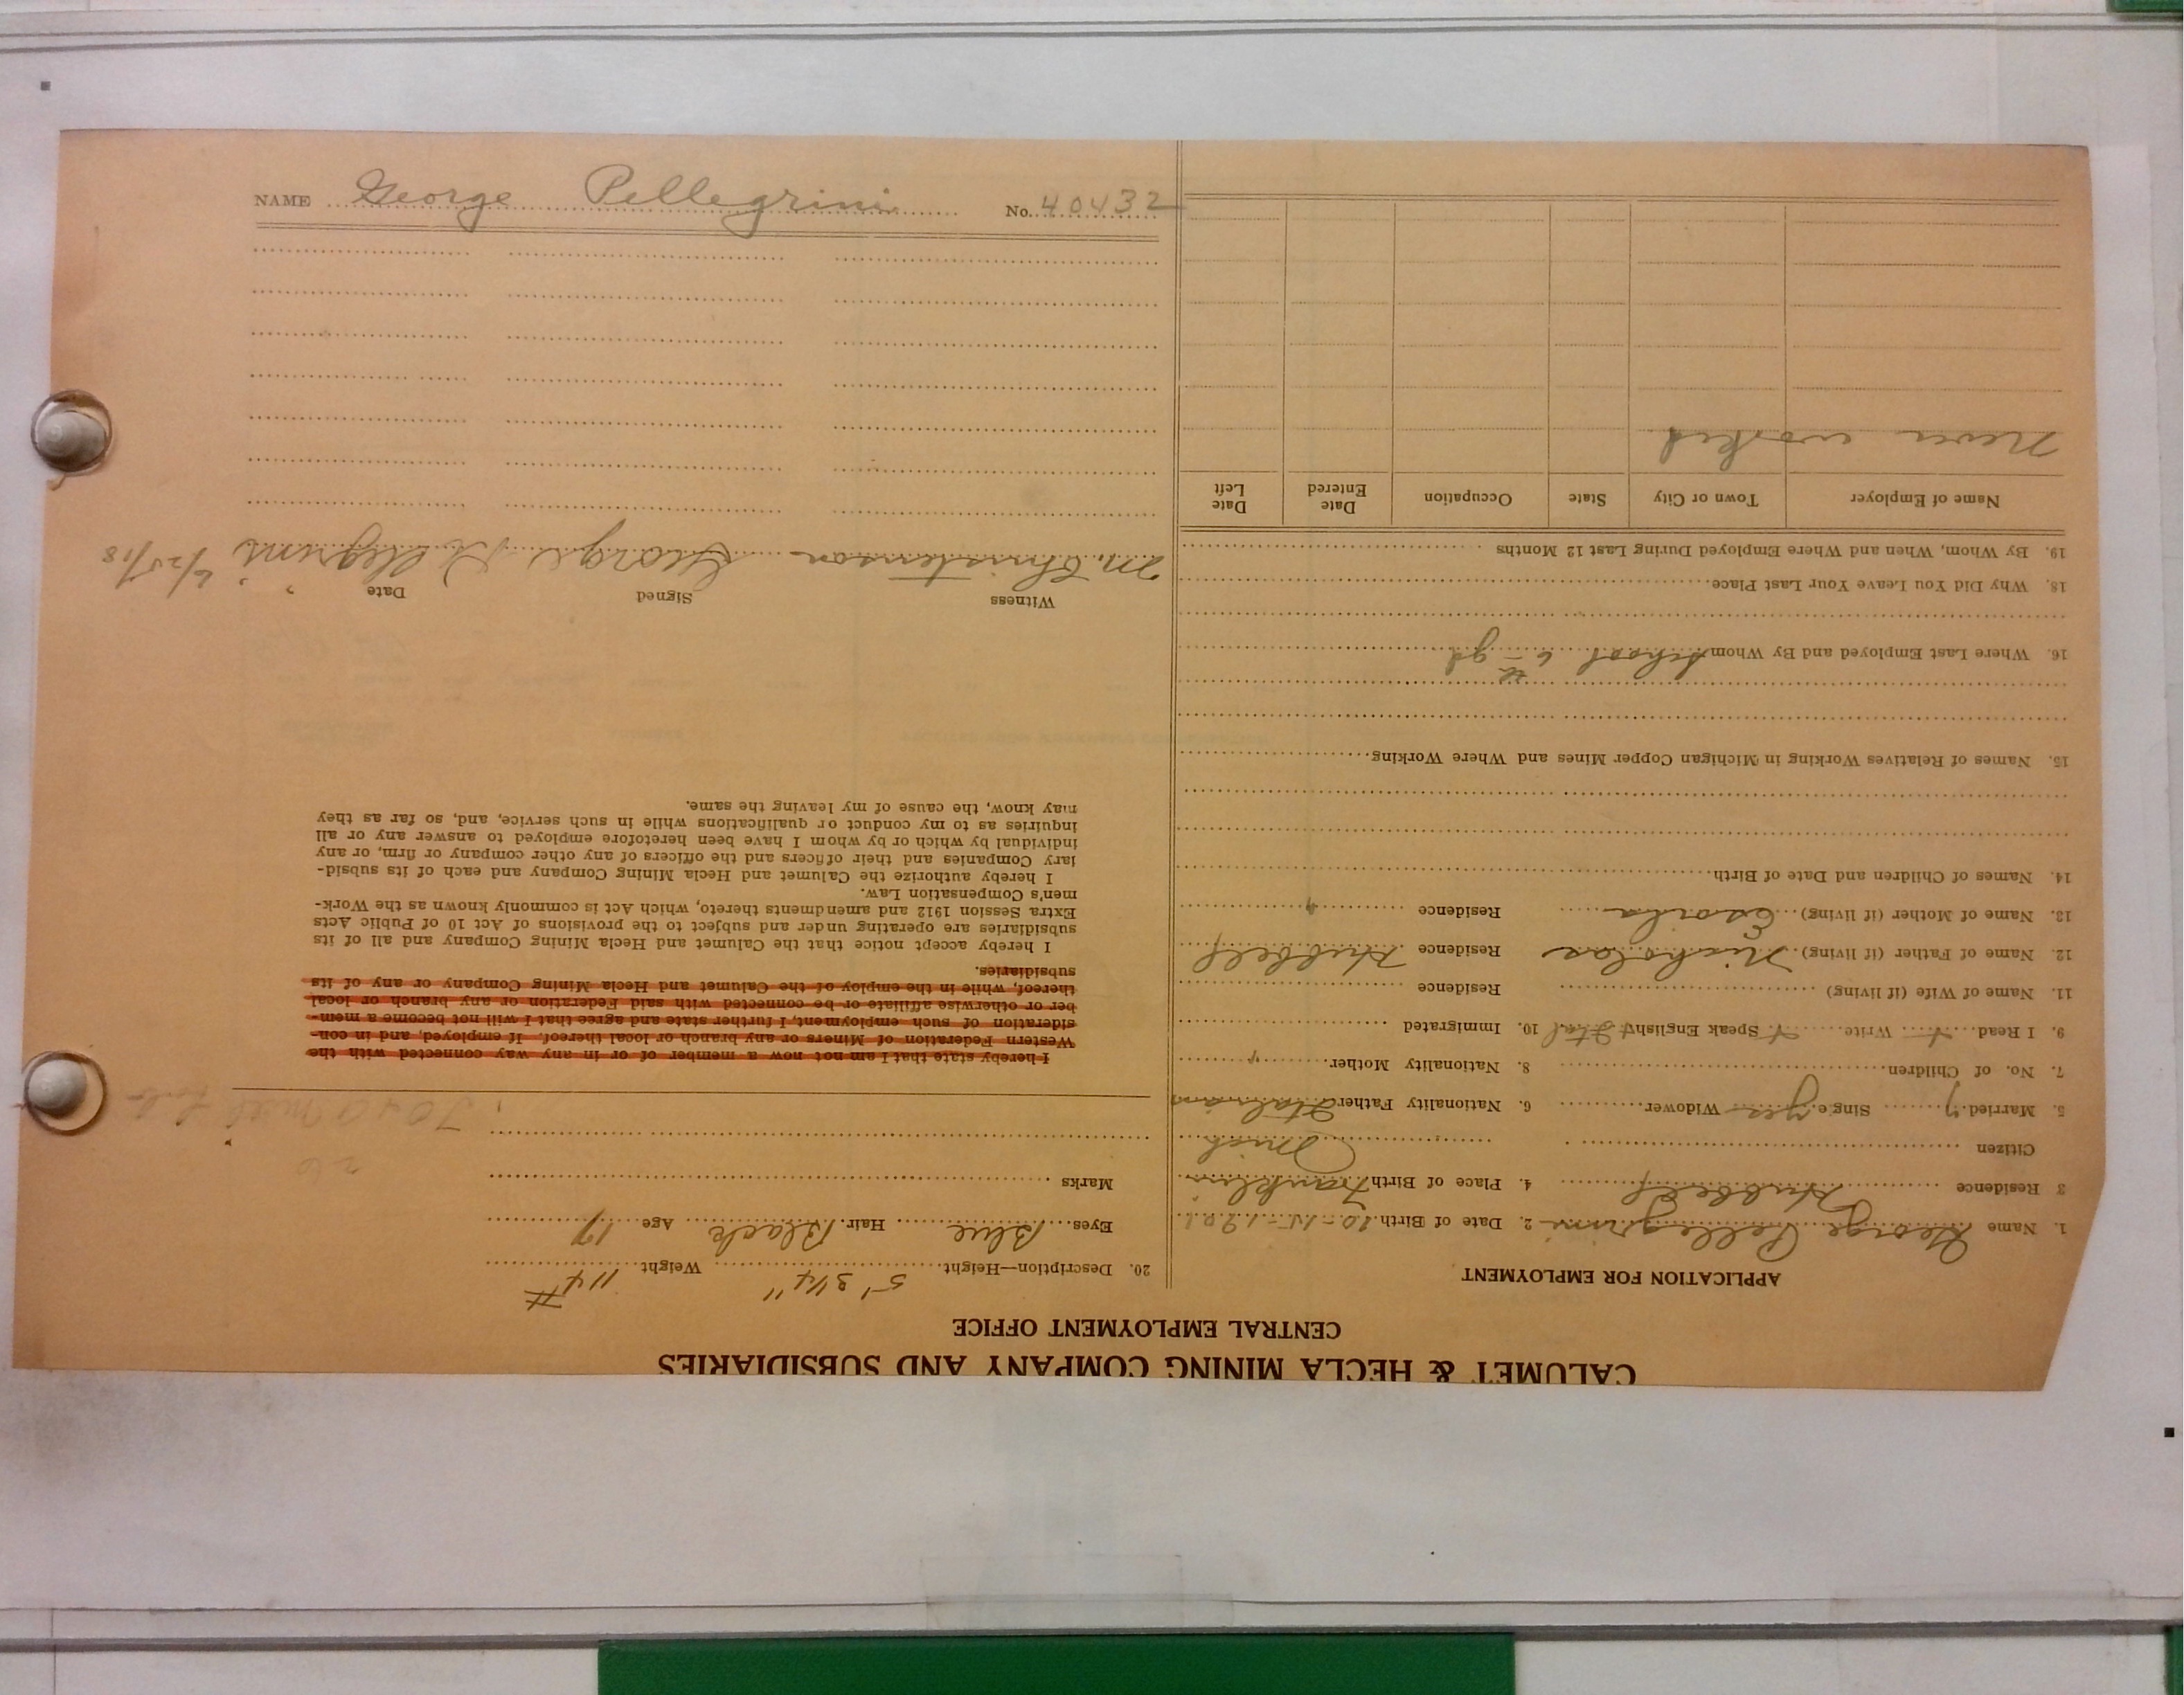 CALUMET & HECLA MINING COMPANY AND SUBSIDIARIES
CENTRAL EMPLOYMENT OFFICE
APPLICATION FOR EMPLOYMENT
1. Name George Pellegrini 2. Date of Birth 10-15-1901
3 Residence Hubbell 4. Place of Birth Franklin
Citizen Mich
5. Married Single yes Widower 6. Nationality Father Italian
7. No. of Children 8. Nationality Mother "
9. I Read Write Speak English Ital 10. Immigrated
11. Name of Wife (if living) Residence
12. Name of Father (if living) Nicholas Residence Hubbell
13. Name of Mother (if living) Residence "
14. Names of Children and Date of Birth
15. Names of Relatives Working in Michigan Copper Mines and Where Working
16. Where Last Employed and By Whom School 6th gd
18. Why Did You Leave Your Last Place
19. By Whom, When and Where Employed During Last 12 Months
Name of Employer Town or City State Occupation Date Entered Date Left
Never worked
20. Description—Height 5' 3 1/4" Weight 114#
Eyes Blue Hair Black Age 17
Marks
I hereby state that I am not now a member of or in any way connected with the
Western Federation of Miners or any branch or local thereof. If employed, and in con-
sideration of such employment, I further state and agree that I will not become a mem-
ber or otherwise affiliate or be connected with said Federation or any branch or local
thereof, while in the employ of the Calumet and Hecla Mining Company or any of its
subsidiaries.
I hereby accept notice that the Calumet and Hecla Mining Company and all of its
subsidiaries are operating under and subject to the provisions of Act 10 of Public Acts
Extra Session 1912 and amendments thereto, which Act is commonly known as the Work-
men's Compensation Law.
I hereby authorize the Calumet and Hecla Mining Company and each of its subsid-
iary Companies and their officers and the officers of any other company or firm, or any
individual by which or by whom I have been heretofore employed to answer any or all
inquiries as to my conduct or qualifications while in such service, and, so far as they
may know, the cause of my leaving the same.
Witness Signed Date
M. Christenson George Pellegrini 6/25/18
NAME George Pellegrini No. 40432